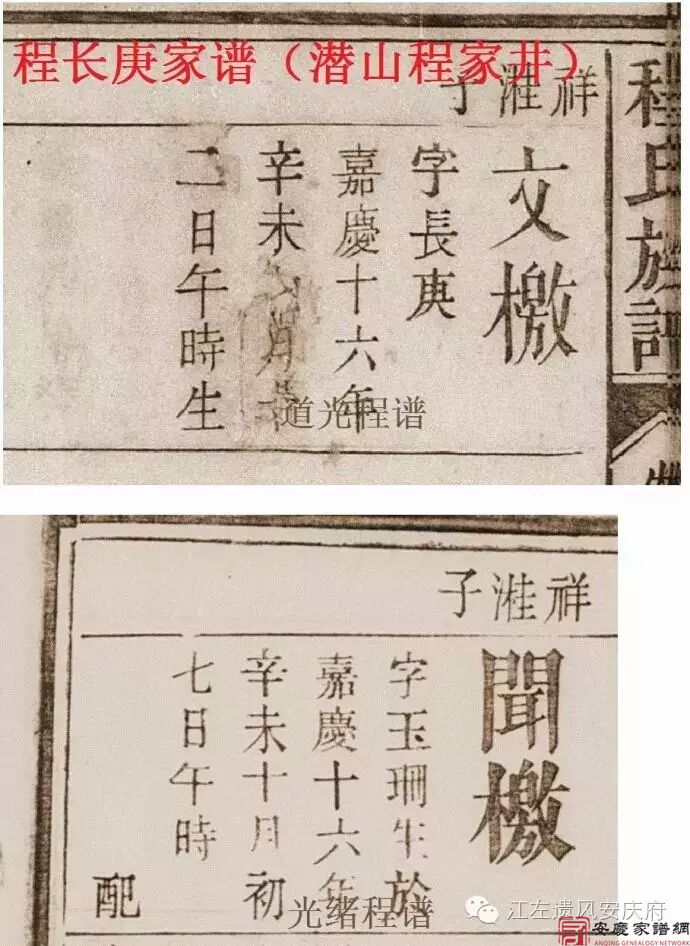 程长庚家谱（潜山程家井）
程氏族譜
祥溎子
文檄
字長庚
嘉慶十六年
辛未月
二日午時生
道光程谱
祥溎子
聞檄
字玉珊生於
嘉慶十六年
辛未十月初
七日午時
配
光绪程谱
江左遗风安庆府
安慶家譜網
ANQING GENEALOGY NETWORK